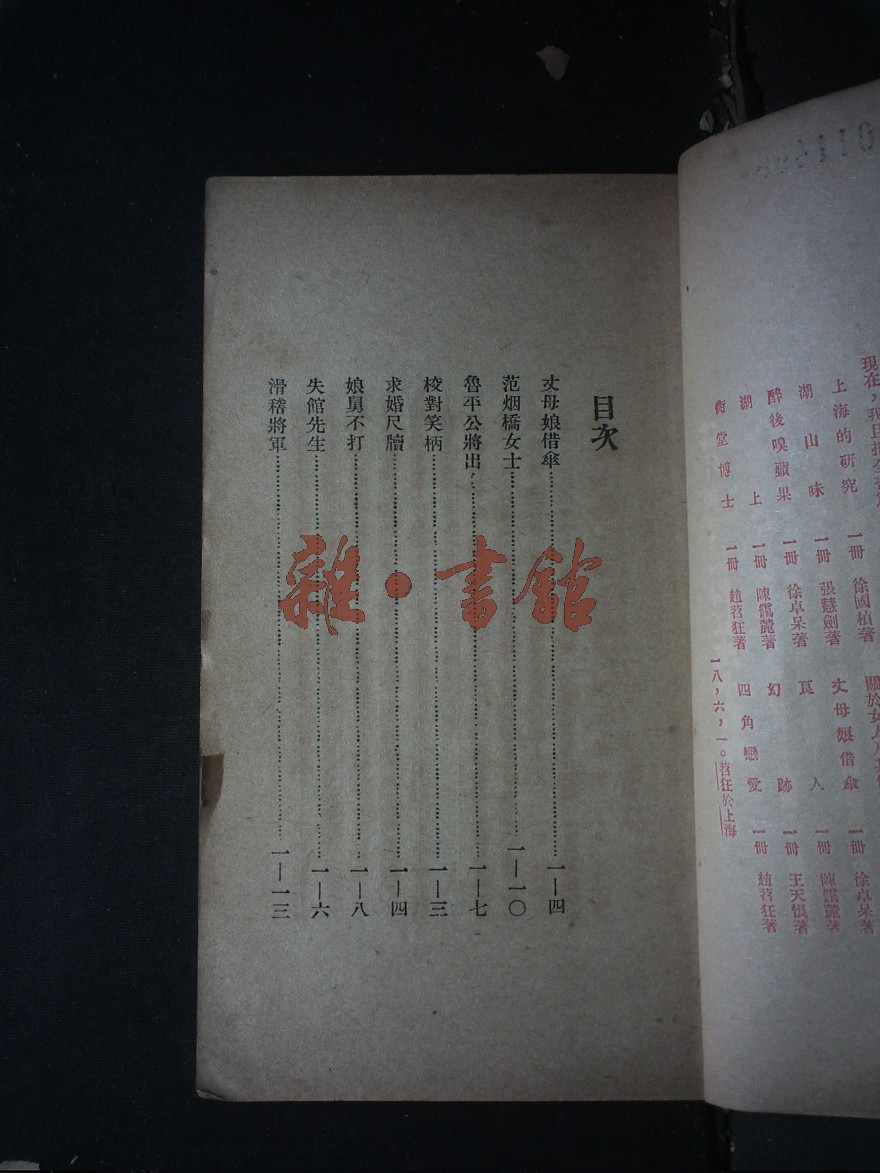 現在，我且把全書
關於女人
上海的研究 一冊 徐國楨著 丈母娘借傘 一冊 徐卓呆著
湖山味 一冊 張慧劍著 良人 一冊 陳靄麓著
醉後嗅蘋果 一冊 徐卓呆著 幻跡 一冊 王天恨著
湖上 一冊 陳靄麓著 四角戀愛 一冊 趙苕狂著
衖堂博士 一冊 趙苕狂著
一八，六，一。苕狂於上海
目次
丈母娘借傘……一—四
范烟橋女士……一—一〇
魯平公將出……一—七
校對笑柄……一—三
求婚尺牘……一—四
娘舅不打……一—八
失館先生……一—六
滑稽將軍……一—一三
雜·書館